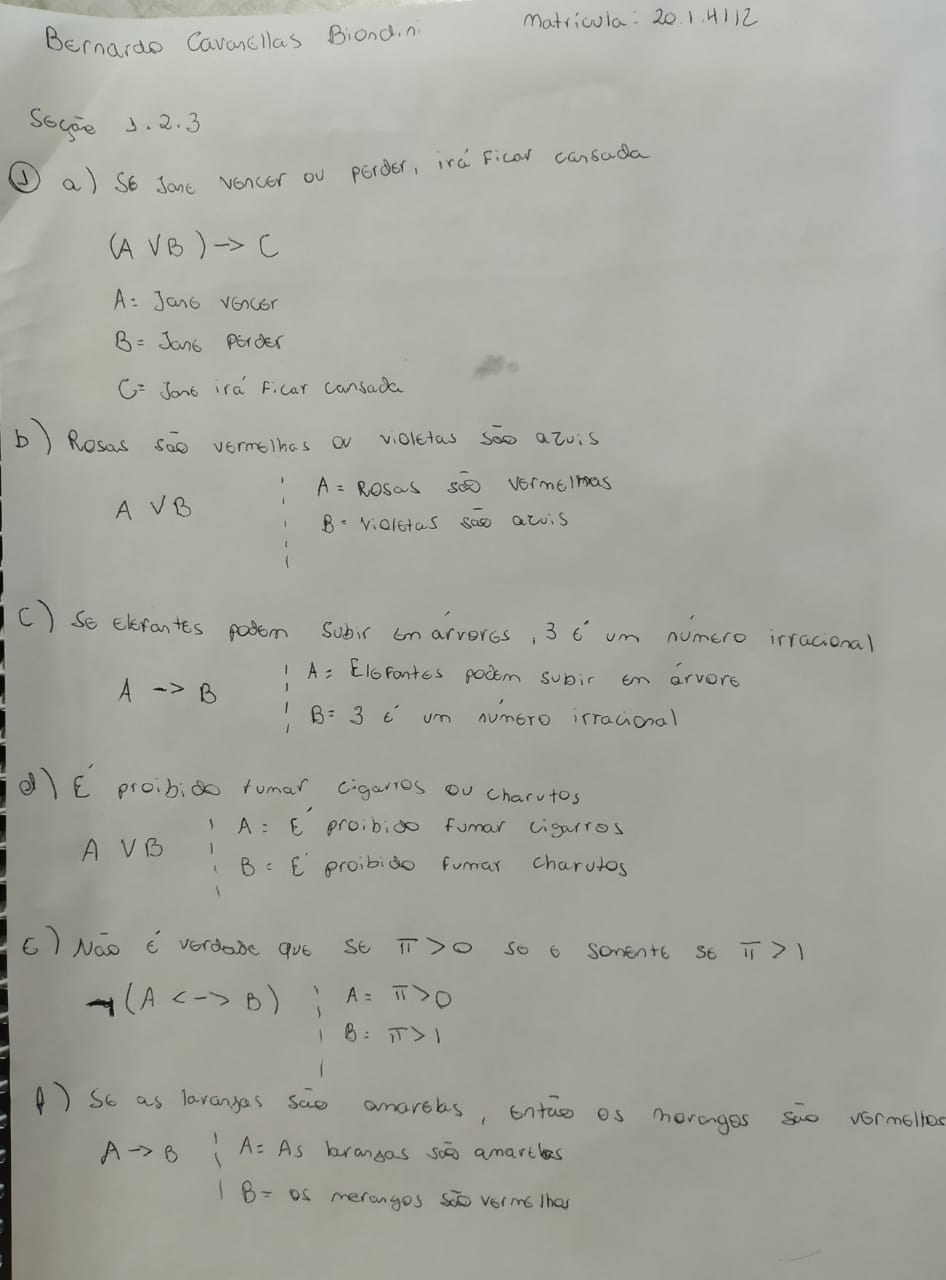 Bernardo Cavanellas Biondini Matrícula: 20.1.4112
Seção 1.2.3
① a) Se Jane vencer ou perder, irá ficar cansada
(A ∨ B) -> C
A= Jane vencer
B= Jane perder
C= Jane irá ficar cansada
b) Rosas são vermelhas ou violetas são azuis
A ∨ B
A = Rosas são vermelhas
B= violetas são azuis
c) Se elefantes podem subir em árvores, 3 é um número irracional
A -> B
A= Elefantes podem subir em árvore
B= 3 é um número irracional
d) É proibido fumar cigarros ou charutos
A ∨ B
A= É proibido fumar cigarros
B= É proibido fumar charutos
E) Não é verdade que se π>0 se e somente se π>1
¬(A <-> B)
A= π>0
B= π>1
f) Se as laranjas são amarelas, então os morangos são vermelhos
A -> B
A= As laranjas são amarelas
B= os morangos são vermelhos